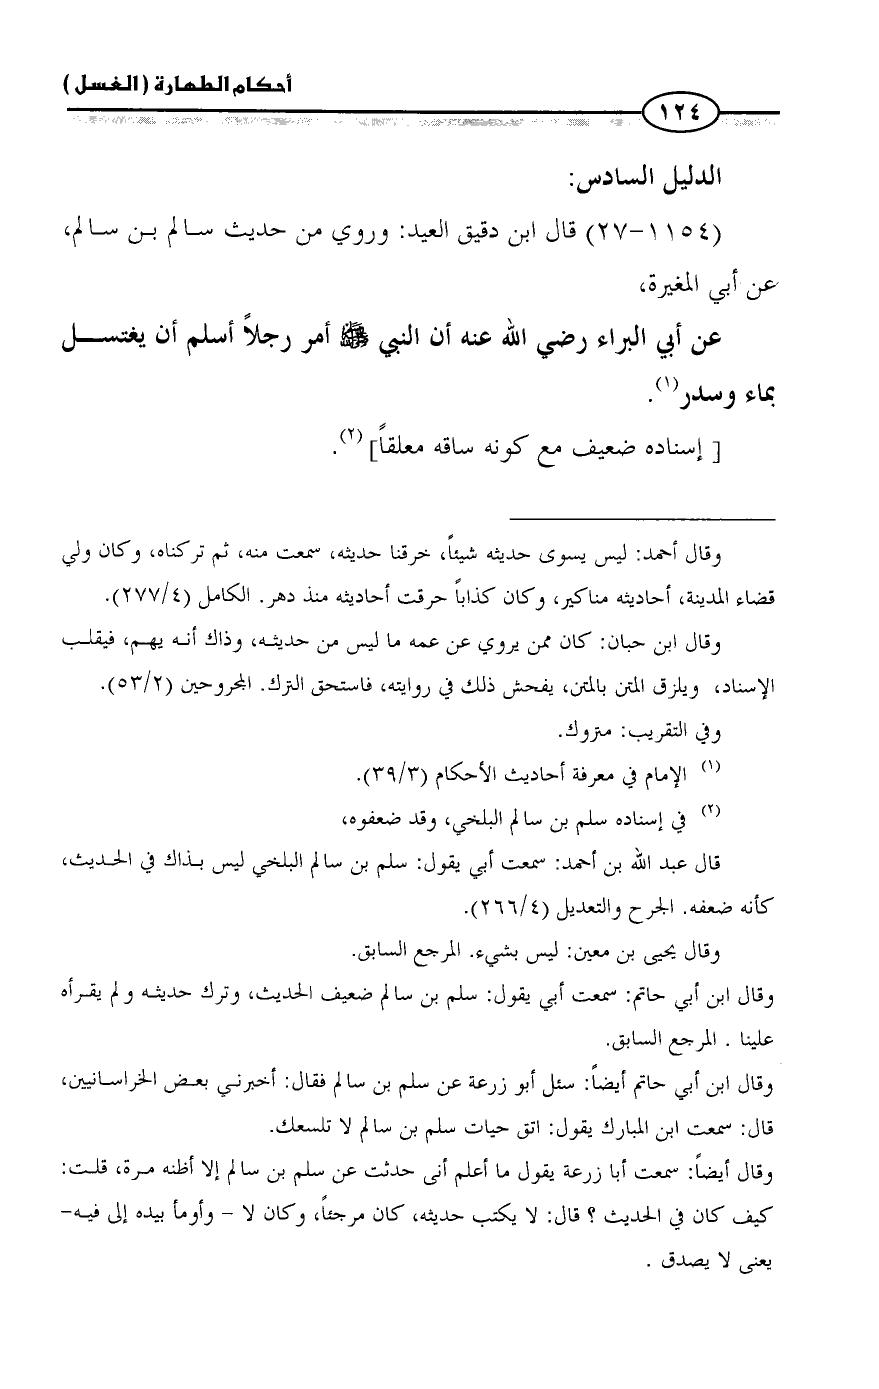 أحكام الطهارة (الغسل)
١٢٤
الدليل السادس:
(١١٥٤-٢٧) قال ابن دقيق العيد: وروي من حديث سالم بن سالم،
عن أبي المغيرة،
عن أبي البراء رضي الله عنه أن النبي ﷺ أمر رجلاً أسلم أن يغتسل
بماء وسدر(١).
[ إسناده ضعيف مع كونه ساقه معلقاً](٢).
وقال أحمد: ليس يسوى حديثه شيئاً، خرقنا حديثه، سمعت منه، ثم تركناه، وكان ولي
قضاء المدينة، أحاديثه مناكير، وكان كذاباً حرقت أحاديثه منذ دهر. الكامل (٢٧٧/٤).
وقال ابن حبان: كان ممن يروي عن عمه ما ليس من حديثه، وذاك أنه يهم، فيقلب
الإسناد، ويلزق المتن بالمتن، يفحش ذلك في روايته، فاستحق الترك. المجروحين (٥٣/٢).
وفي التقريب: متروك.
(١) الإمام في معرفة أحاديث الأحكام (٣٩/٣).
(٢) في إسناده سلم بن سالم البلخي، وقد ضعفوه،
قال عبد الله بن أحمد: سمعت أبي يقول: سلم بن سالم البلخي ليس بذاك في الحديث،
كأنه ضعفه. الجرح والتعديل (٢٦٦/٤).
وقال يحيى بن معين: ليس بشيء. المرجع السابق.
وقال ابن أبي حاتم: سمعت أبي يقول: سلم بن سالم ضعيف الحديث، وترك حديثه ولم يقرأه
علينا . المرجع السابق.
وقال ابن أبي حاتم أيضاً: سئل أبو زرعة عن سلم بن سالم فقال: أخبرني بعض الخراسانيين،
قال: سمعت ابن المبارك يقول: اتق حيات سلم بن سالم لا تلسعك.
وقال أيضاً: سمعت أبا زرعة يقول ما أعلم أنى حدثت عن سلم بن سالم إلا أظنه مرة، قلت:
كيف كان في الحديث ؟ قال: لا يكتب حديثه، كان مرجئاً، وكان لا - وأومأ بيده إلى فيه-
يعنى لا يصدق .